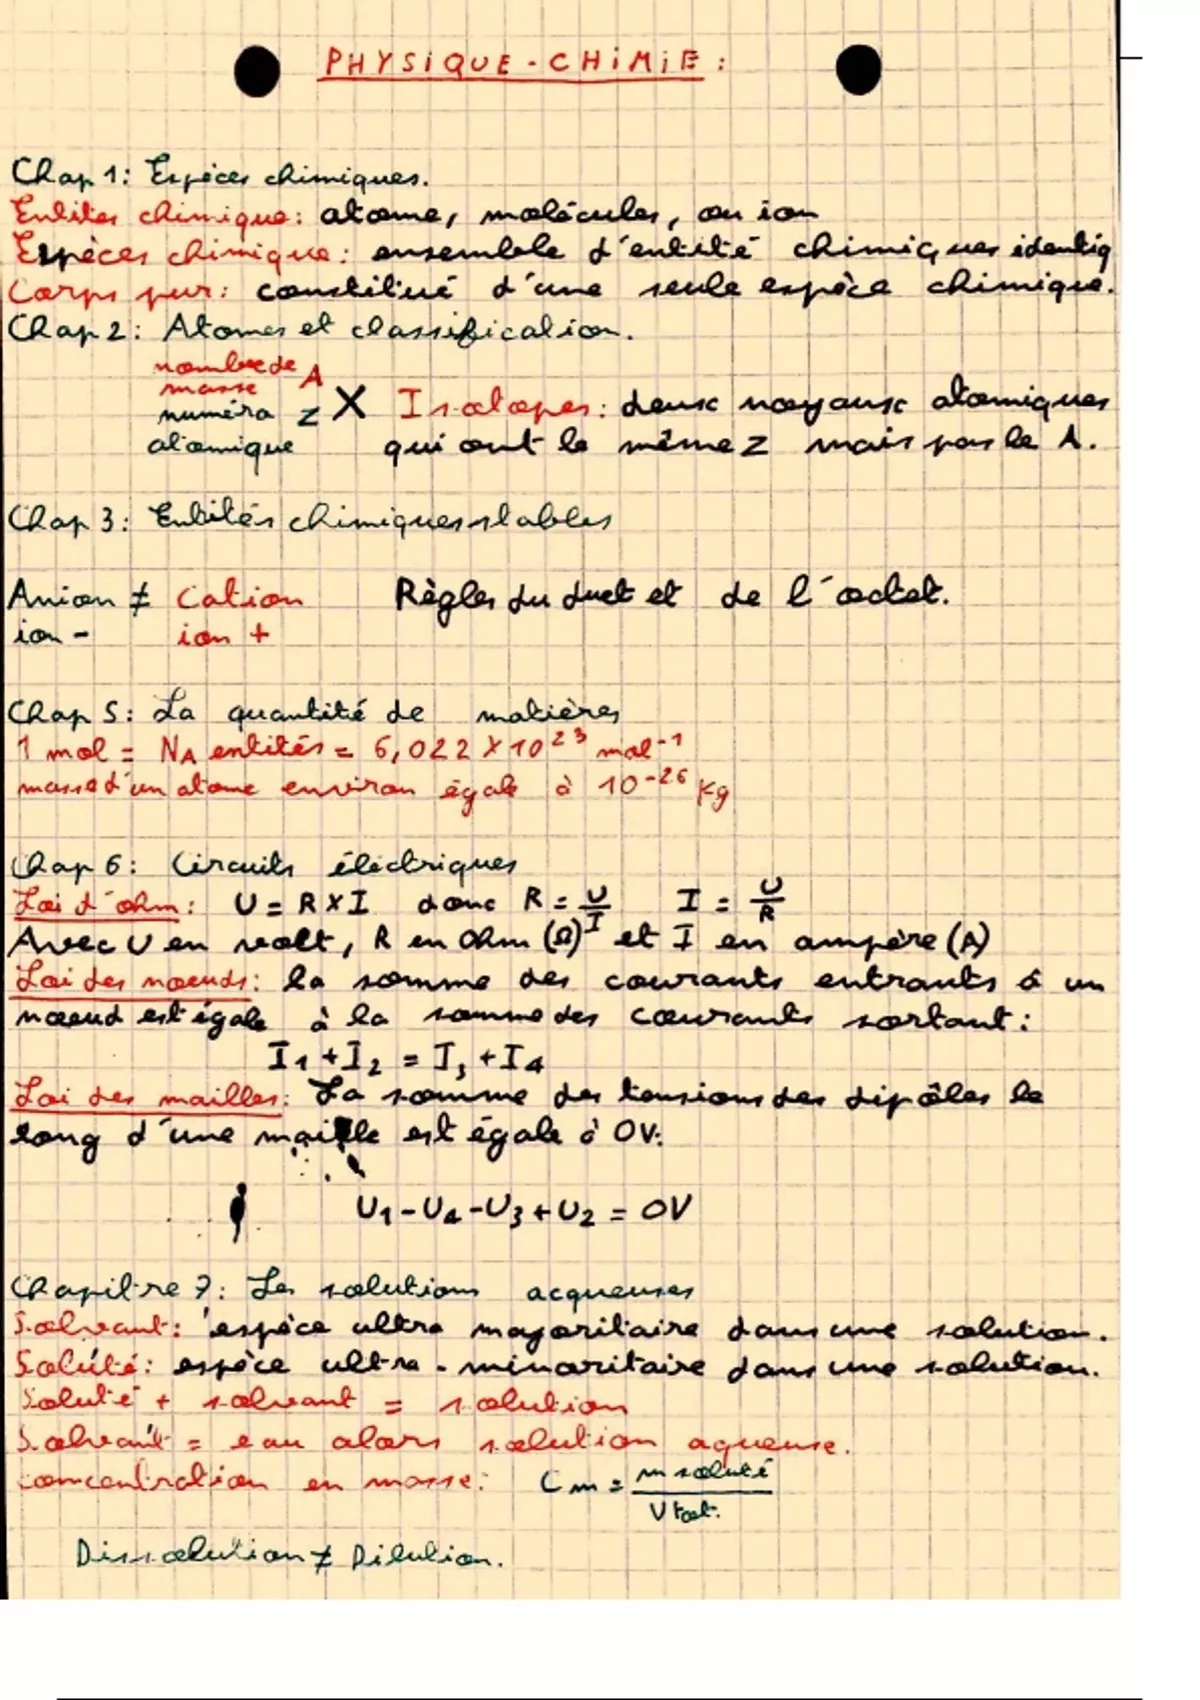 PHYSIQUE-CHIMIE :
Chap 1: Espèces chimiques.
Entités chimique: atome, molécules, ou ion
Espèces chimique: ensemble d'entité chimiques identiq
Corps pur: constitué d'une seule espèce chimique.
Chap 2: Atomes et classification.
nombre de
masse A
numéro Z X Isotopes: deux noyaux atomiques
atomique qui ont le même Z mais pas le A.
Chap 3: Entités chimiques stables
Anion ≠ Cation Règles du duet et de l'octet.
ion - ion +
Chap 5: La quantité de matières
1 mol = NA entités = 6,022 × 10²³ mol⁻¹
masse d'un atome environ égale à 10⁻²⁶ kg
Chap 6: Circuits éléctriques
Loi d'ohm: U = R × I donc R = U/I I = U/R
Avec U en volt, R en Ohm (Ω) et I en ampère (A)
Loi des noeuds: la somme des courants entrants à un
noeud est égale à la somme des courants sortant:
I1 + I2 = I3 + I4
Loi des mailles: La somme des tensions des dipôles le
long d'une maille est égale à 0V:
U1 - U4 - U3 + U2 = 0V
Chapitre 7: Les solutions acqueuses
Solvant: espèce ultra majoritaire dans une solution.
Soluté: espèce ultra-minoritaire dans une solution.
Soluté + solvant = solution
Solvant = eau alors solution aqueuse.
Concentration en masse: Cm = m soluté / V tot.
Dissolution ≠ Dilution.